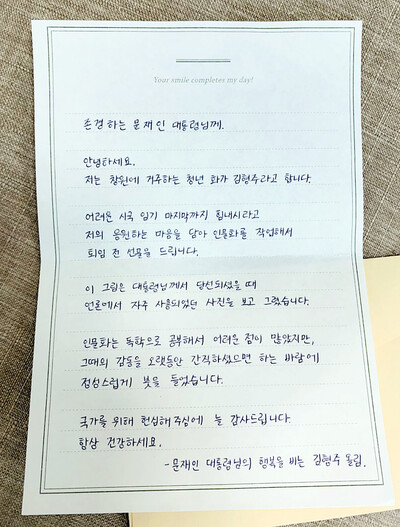 Your smile completes my day!
존경하는 문재인 대통령님께.
안녕하세요.
저는 창원에 거주하는 청년 화가 김형주라고 합니다.
어려운 시국 임기 마지막까지 힘내시라고
저의 응원하는 마음을 담아 인물화를 작업해서
퇴임 전 선물을 드립니다.
이 그림은 대통령님께서 당선되셨을 때
언론에서 자주 사용되었던 사진을 보고 그렸습니다.
인물화는 독학으로 공부해서 어려운 점이 많았지만,
그때의 감동을 오랫동안 간직하셨으면 하는 바람에
정성스럽게 붓을 들었습니다.
국가를 위해 헌신해 주심에 늘 감사드립니다.
항상 건강하세요.
-문재인 대통령님의 행복을 비는 김형주 올림.